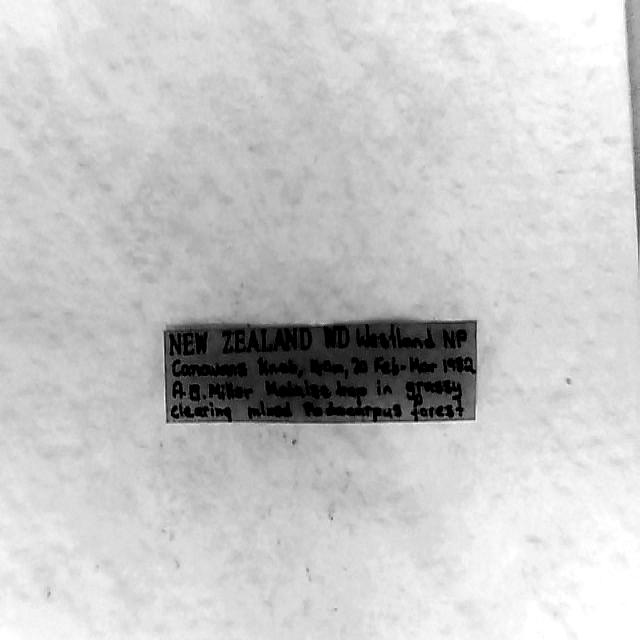 NEW ZEALAND WD Westland NP
Canavans Knob, 20 Feb-Mar 1982
A.B. Miller Malaise trap in grassy
clearing mixed Podocarpus forest